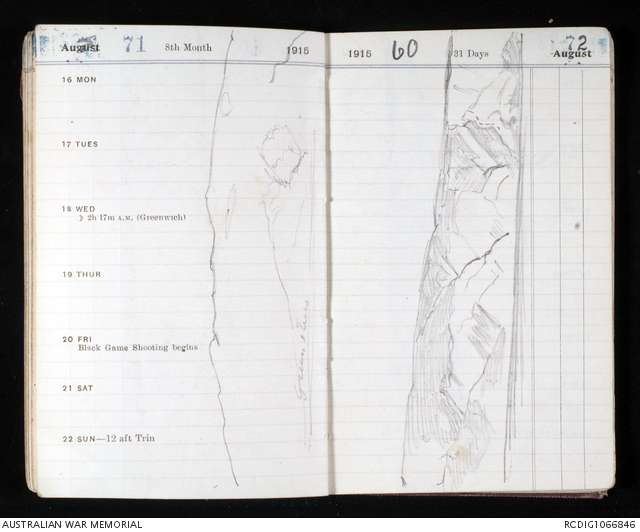 August 71 8th Month 1915
16 MON
17 TUES
18 WED
☽ 2h 17m A.M. (Greenwich)
19 THUR
20 FRI
Black Game Shooting begins
21 SAT
22 SUN—12 aft Trin
1915 60 31 Days 72 August
AUSTRALIAN WAR MEMORIAL
RCDIG1066846